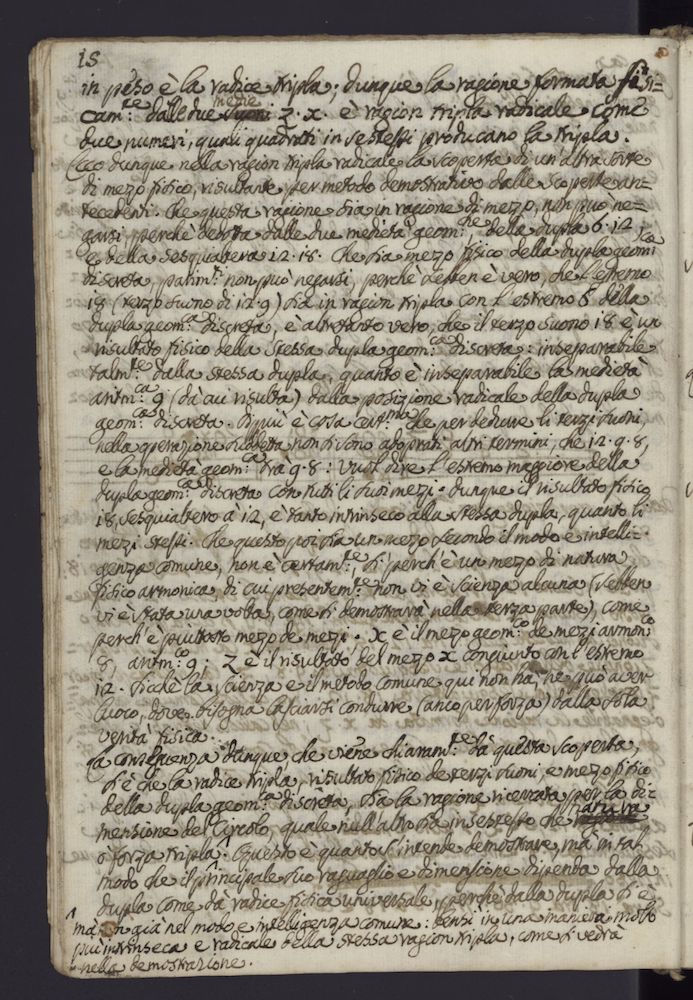 18
in peso è la radice tripla; dunque la ragione formata fisi=
cam.te dalle due medie z. x. è ragion tripla radicale, come
due numeri, quali quadrati in se stessi producano la tripla.
Ecco dunque nella ragion tripla radicale la scoperta di un'altra sorte
di mezzo fisico, risultante per metodo demostrativo dalle scoperte an=
tecedenti. Che questa ragione sia in ragione di mezzo, non può ne=
garsi, perchè dedotta dalle due medietà geom.che della dupla 6. 12,
e della sesquialtera 12. 18. Che sia mezzo fisico della dupla geom.ca
discreta, parim.ti non può negarsi, perchè se ben è vero, che l'estremo
18 (terzo suono di 12. 9) sia in ragion tripla con l'estremo 6 della
dupla geom.ca discreta, è altretanto vero, che il terzo suono 18 è un
risultato fisico della stessa dupla geom.ca discreta: inseparabile
talm.te dalla stessa dupla, quanto è inseparabile la medietà
aritm.ca 9 (da cui risulta) dalla posizione radicale della dupla
geom.ca discreta. Di più è cosa cert.ma che per dedurre li terzi suoni,
nella operazione suddetta non si sono adoprati altri termini, che 12. 9. 8,
e la medietà geom.ca trà 9. 8: vuol dire l'estremo maggiore della
dupla geom.ca discreta con tutti li suoi mezzi. Dunque il risultato fisico
18, sesquialtero a 12, è tanto intrinseco alla stessa dupla, quanto li
mezzi stessi. Che questo poi sia un mezzo secondo il modo e intelli=
genza comune, non è certam.te, sì perch'è un mezzo di natura
fisico armonica, di cui presentem.te non vi è scienza alcuna (sebben
vi è stata una volta, come si demostrarà nella terza parte), come
perch'è piuttosto mezzo de mezzi. X è il mezzo geom.co de mezzi armon.co
8, aritm.co 9; Z è il risultato del mezzo x congiunto con l'estremo
12. Sicchè la scienza e il metodo comune qui non ha, ne può aver
luoco, dove bisogna lasciarsi condurre (anco per forza) dalla sola
verità fisica.
La conseguenza dunque che viene chiaram.te da questa scoperta,
si è che la radice tripla, risultato fisico de terzi suoni, e mezzo fisico
della dupla geom.ca discreta, sia la ragione ricercata per la di=
mensione del Circolo, quale null'altro sia in se stesso che natura
o forza tripla. Questo è quanto s'intende demostrare, mà in tal
modo che il principale suo raguaglio e dimensione dipenda dalla
dupla come da radice fisica universale, perchè dalla dupla si è
mà non già nel modo e intelligenza comune: bensì in una maniera molto
più intrinseca e radicale della stessa ragion tripla, come si vedrà
nella demostrazione.